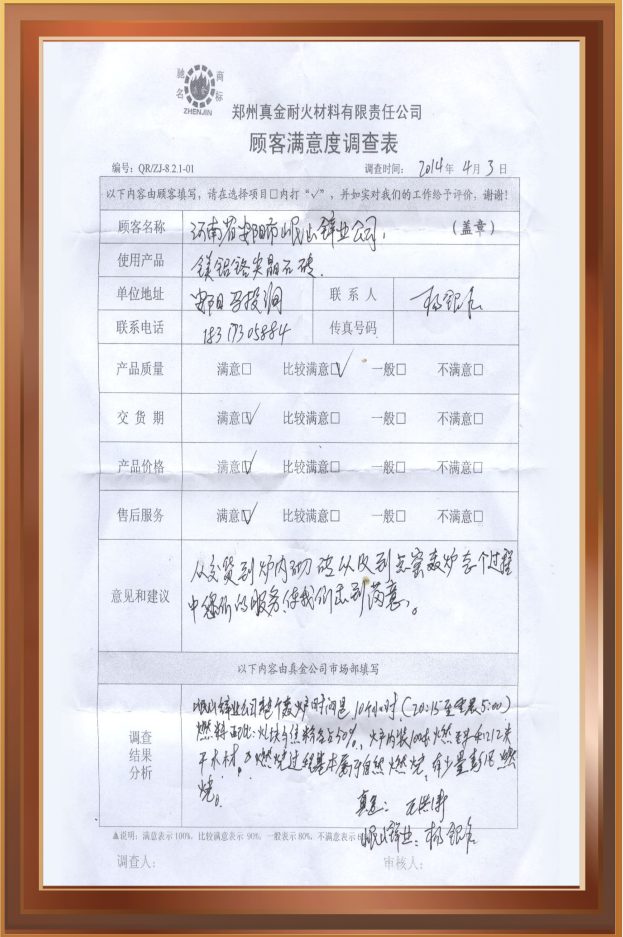 驰名 商标
ZHENJIN
郑州真金耐火材料有限责任公司
顾客满意度调查表
编号: QR/ZJ-8.2.1-01 调查时间: 2014年 4月3日
以下内容由顾客填写,请在选择项目□内打“√”,并如实对我们的工作给予评价,谢谢!
顾客名称 河南省安阳市岷山锌业公司. (盖章)
使用产品 镁铝铬尖晶石砖.
单位地址 安阳马投涧 联系人 杨银
联系电话 传真号码
产品质量 满意□ 比较满意□√ 一般□ 不满意□
交货期 满意□√ 比较满意□ 一般□ 不满意□
产品价格 满意□√ 比较满意□ 一般□ 不满意□
售后服务 满意□√ 比较满意□ 一般□ 不满意□
意见和建议 从交货到炉内砌砖以及到烘窑轰炉整个过程
中您们的服务使我们感到满意。
以下内容由真金公司市场部填写
调查结果分析 岷山锌业公司整个轰炉时间是10个小时(20:15至
燃料配比:火块与焦料各占50%,炉内装
干木材。燃烧过程基本属于自然燃烧,有少量鼓风燃
烧。
真金:
岷山锌业: 杨银
▲说明:满意表示100%,比较满意表示 90%,一般表示80%,不满意表示
调查人: 审核人: